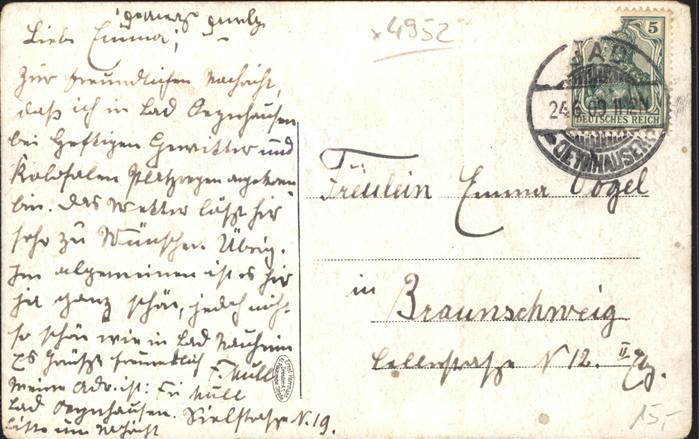 Liebe Emma!
Zur freundlichen Nachricht,
daß ich in Bad Oeynhausen
bei heftigen Gewitter und
Kolosalen Platzregen angekom
bin. Das Wetter läßt hir
sehr zu Wünschen Übrig.
Im algemeinen ist es hir
ja ganz schön, jedoch nicht
so schön wie in Bad Nauheim
Es Grüßt freundlich F. Müll
Meine Adr. ist: Fr. Müll
Bad Oeynhausen. Sielstraße N. 19.
bitte um Nachricht
x 4952
5
DEUTSCHES REICH
BAD
24.6.09. 11-12N
OEYNHAUSEN
Fräulein Emma Vogel
in
Braunschweig
Cellerstraße N 12. II
15,-